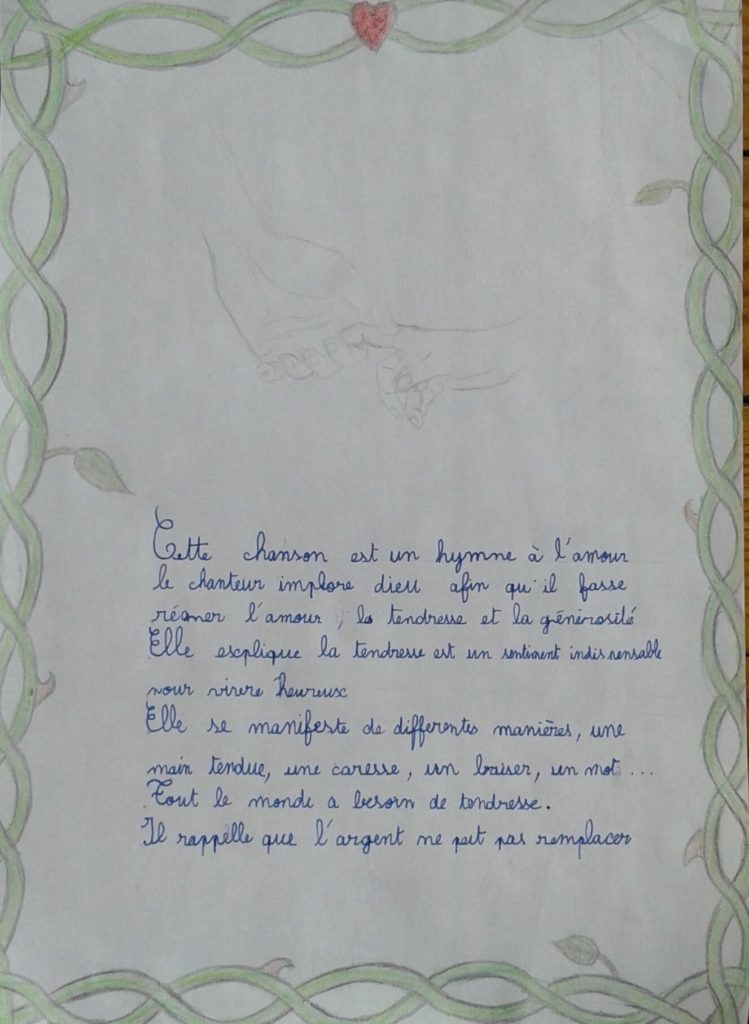 Cette chanson est un hymne à l'amour
le chanteur implore dieu afin qu'il fasse
régner l'amour, la tendresse et la générosité
Elle explique la tendresse est un sentiment indispensable
pour vivre heureux
Elle se manifeste de differentes manières, une
main tendue, une caresse, un baiser, un mot ...
Tout le monde a besoin de tendresse.
Il rappelle que l'argent ne peut pas remplacer